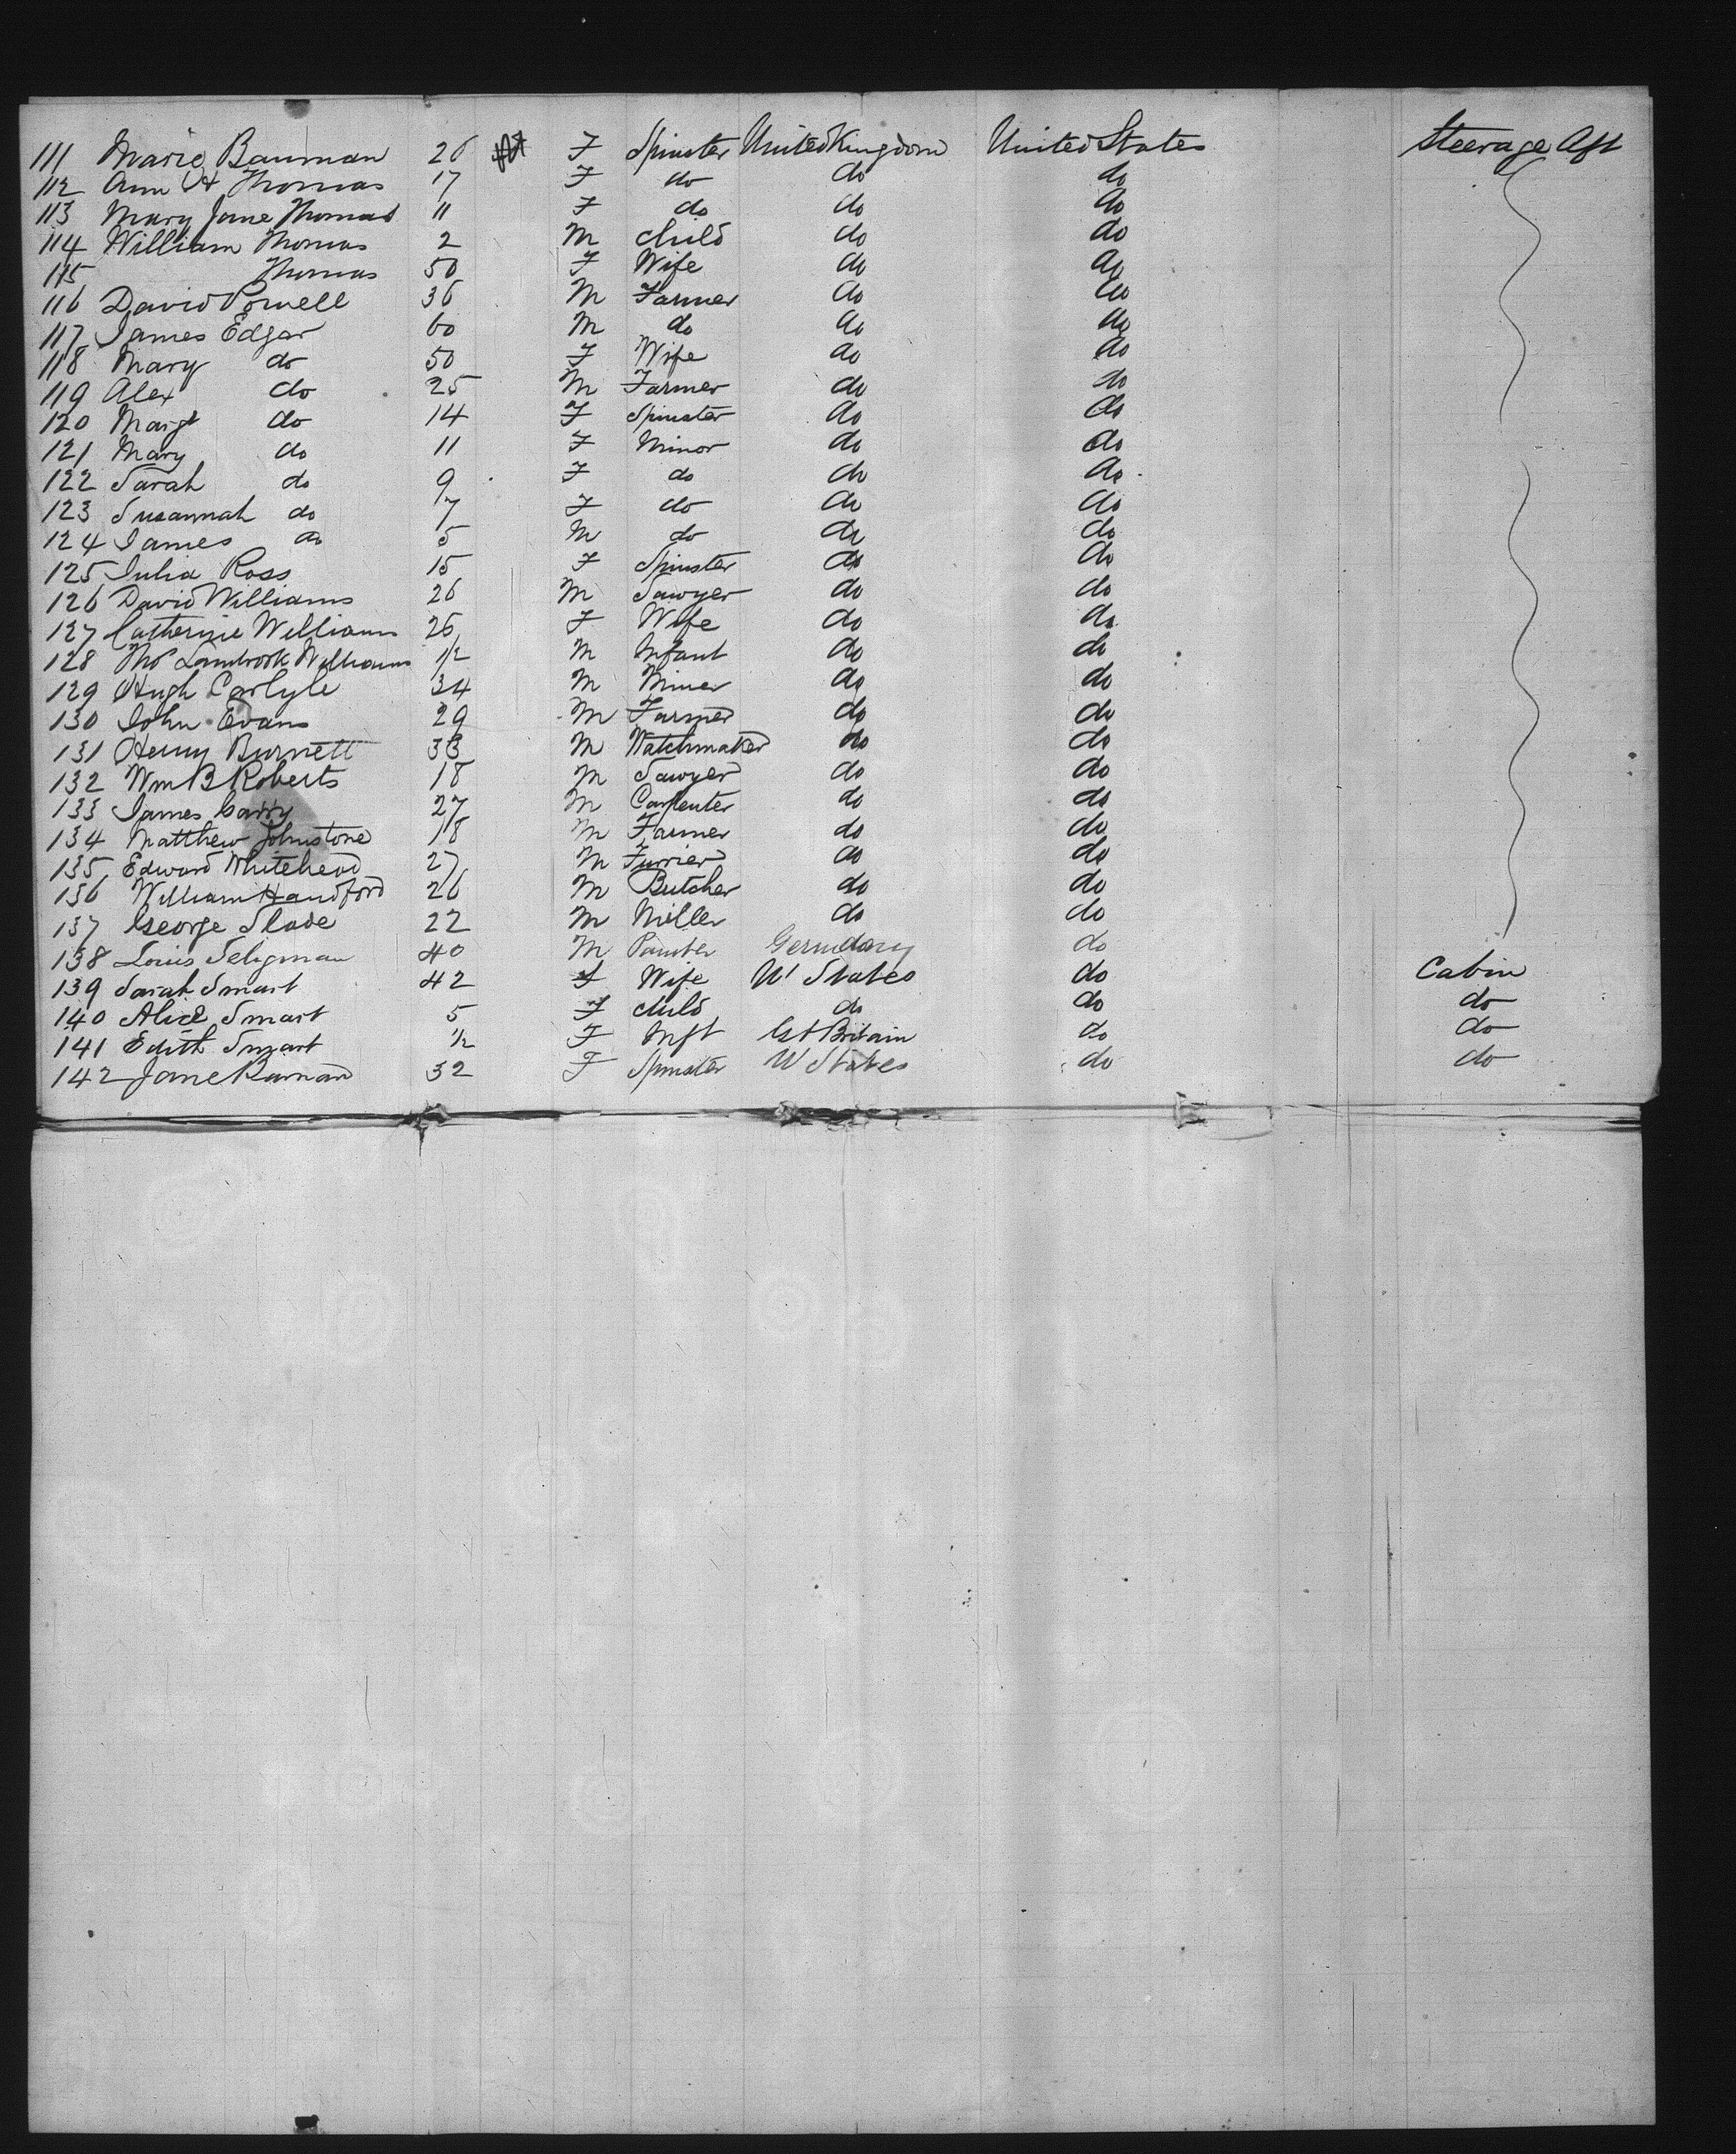 111 Marie Bauman 26 F Spinster United Kingdom United States Steerage Aft
112 Ann H Thomas 17 F do do do
113 Mary Jane Thomas 11 F do do do
114 William Thomas 2 M child do do
115 Thomas 50 F Wife do do
116 David Powell 36 M Farmer do do
117 James Edgar 60 M do do do
118 Mary do 50 F Wife do do
119 Alex do 25 M Farmer do do
120 Margt do 14 F Spinster do do
121 Mary do 11 F Minor do do
122 Sarah do 9 F do do do
123 Susannah do 7 F do do do
124 James do 5 M do do do
125 Julia Ross 15 F Spinster do do
126 David Williams 26 M Sawyer do do
127 Catherine Williams 25 F Wife do do
128 Thos Williams 1/2 M Infant do do
129 Hugh Carlyle 34 M Miner do do
130 John Evans 29 M Farmer do do
131 Henry Burnett 33 M Watchmaker do do
132 Wm B Roberts 18 M Sawyer do do
133 James 27 M Carpenter do do
134 Matthew Johnstone 18 M Farmer do do
135 Edward Whitehead 27 M Furrier do do
136 William Handford 26 M Butcher do do
137 George Slade 22 M Miller do do
138 Louis Seligman 40 M Painter Germany do
139 Sarah Smart 42 F Wife U States do Cabin
140 Alice Smart 5 F child do do do
141 Edith Smart 1/2 F Inft Gt Britain do do
142 Jane 32 F Spinster U States do do